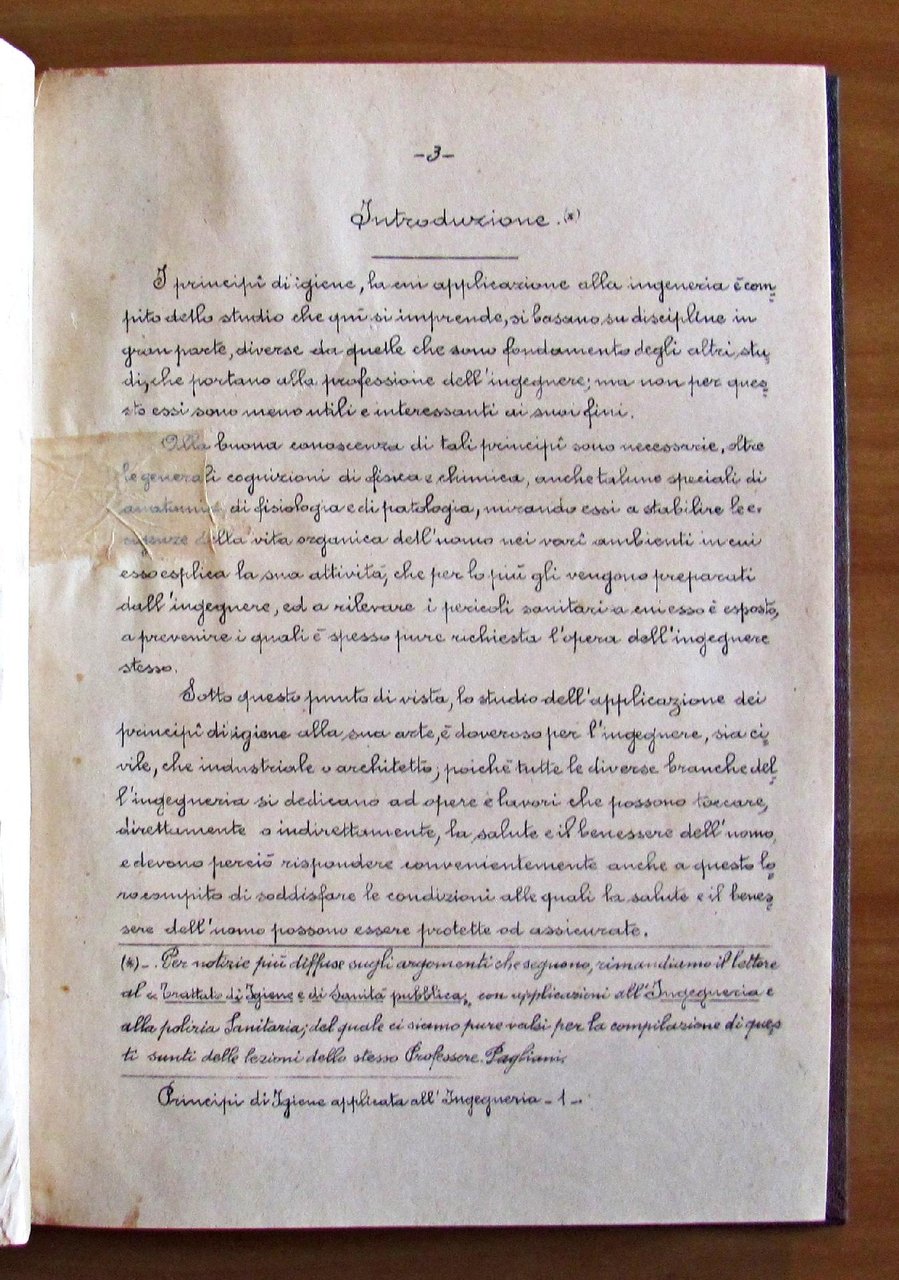 -3-
Introduzione. (*)
I principî di igiene, la cui applicazione alla ingeneria è com-
pito dello studio che quì si imprende, si basano su discipline in
gran parte, diverse da quelle che sono fondamento degli altri stu-
di, che portano alla professione dell'ingegnere; ma non per que-
sto essi sono meno utili e interessanti ai suoi fini.
Alla buona conoscenza di tali principî sono necessarie, oltre
le generali cognizioni di fisica e chimica, anche talune speciali di
anatomia, di fisiologia e di patologia, mirando essi a stabilire le e-
della vita organica dell'uomo nei varî ambienti in cui
esso esplica la sua attività, che per lo più gli vengono preparati
dall'ingegnere, ed a rilevare i pericoli sanitari a cui esso è esposto,
a prevenire i quali è spesso pure richiesta l'opera dell'ingegnere
stesso.
Sotto questo punto di vista, lo studio dell'applicazione dei
principî di igiene alla sua arte, è doveroso per l'ingegnere, sia ci-
vile, che industriale o architetto; poichè tutte le diverse branche del-
l'ingegneria si dedicano ad opere e lavori che possono toccare,
direttamente o indirettamente, la salute e il benessere dell'uomo,
e devono perciò rispondere convenientemente anche a questo lo-
ro compito di soddisfare le condizioni alle quali la salute e il benes-
sere dell'uomo possono essere protette od assicurate.
(*)-. Per notizie più diffuse sugli argomenti che seguono, rimandiamo il lettore
al "Trattato di Igiene e di Sanità pubblica", con applicazioni all'Ingegneria e
alla polizia Sanitaria; del quale ci siamo pure valsi per la compilazione di ques-
ti sunti delle lezioni dello stesso Professore. Pagliani.
Principi di Igiene applicata all'Ingegneria - 1 -.